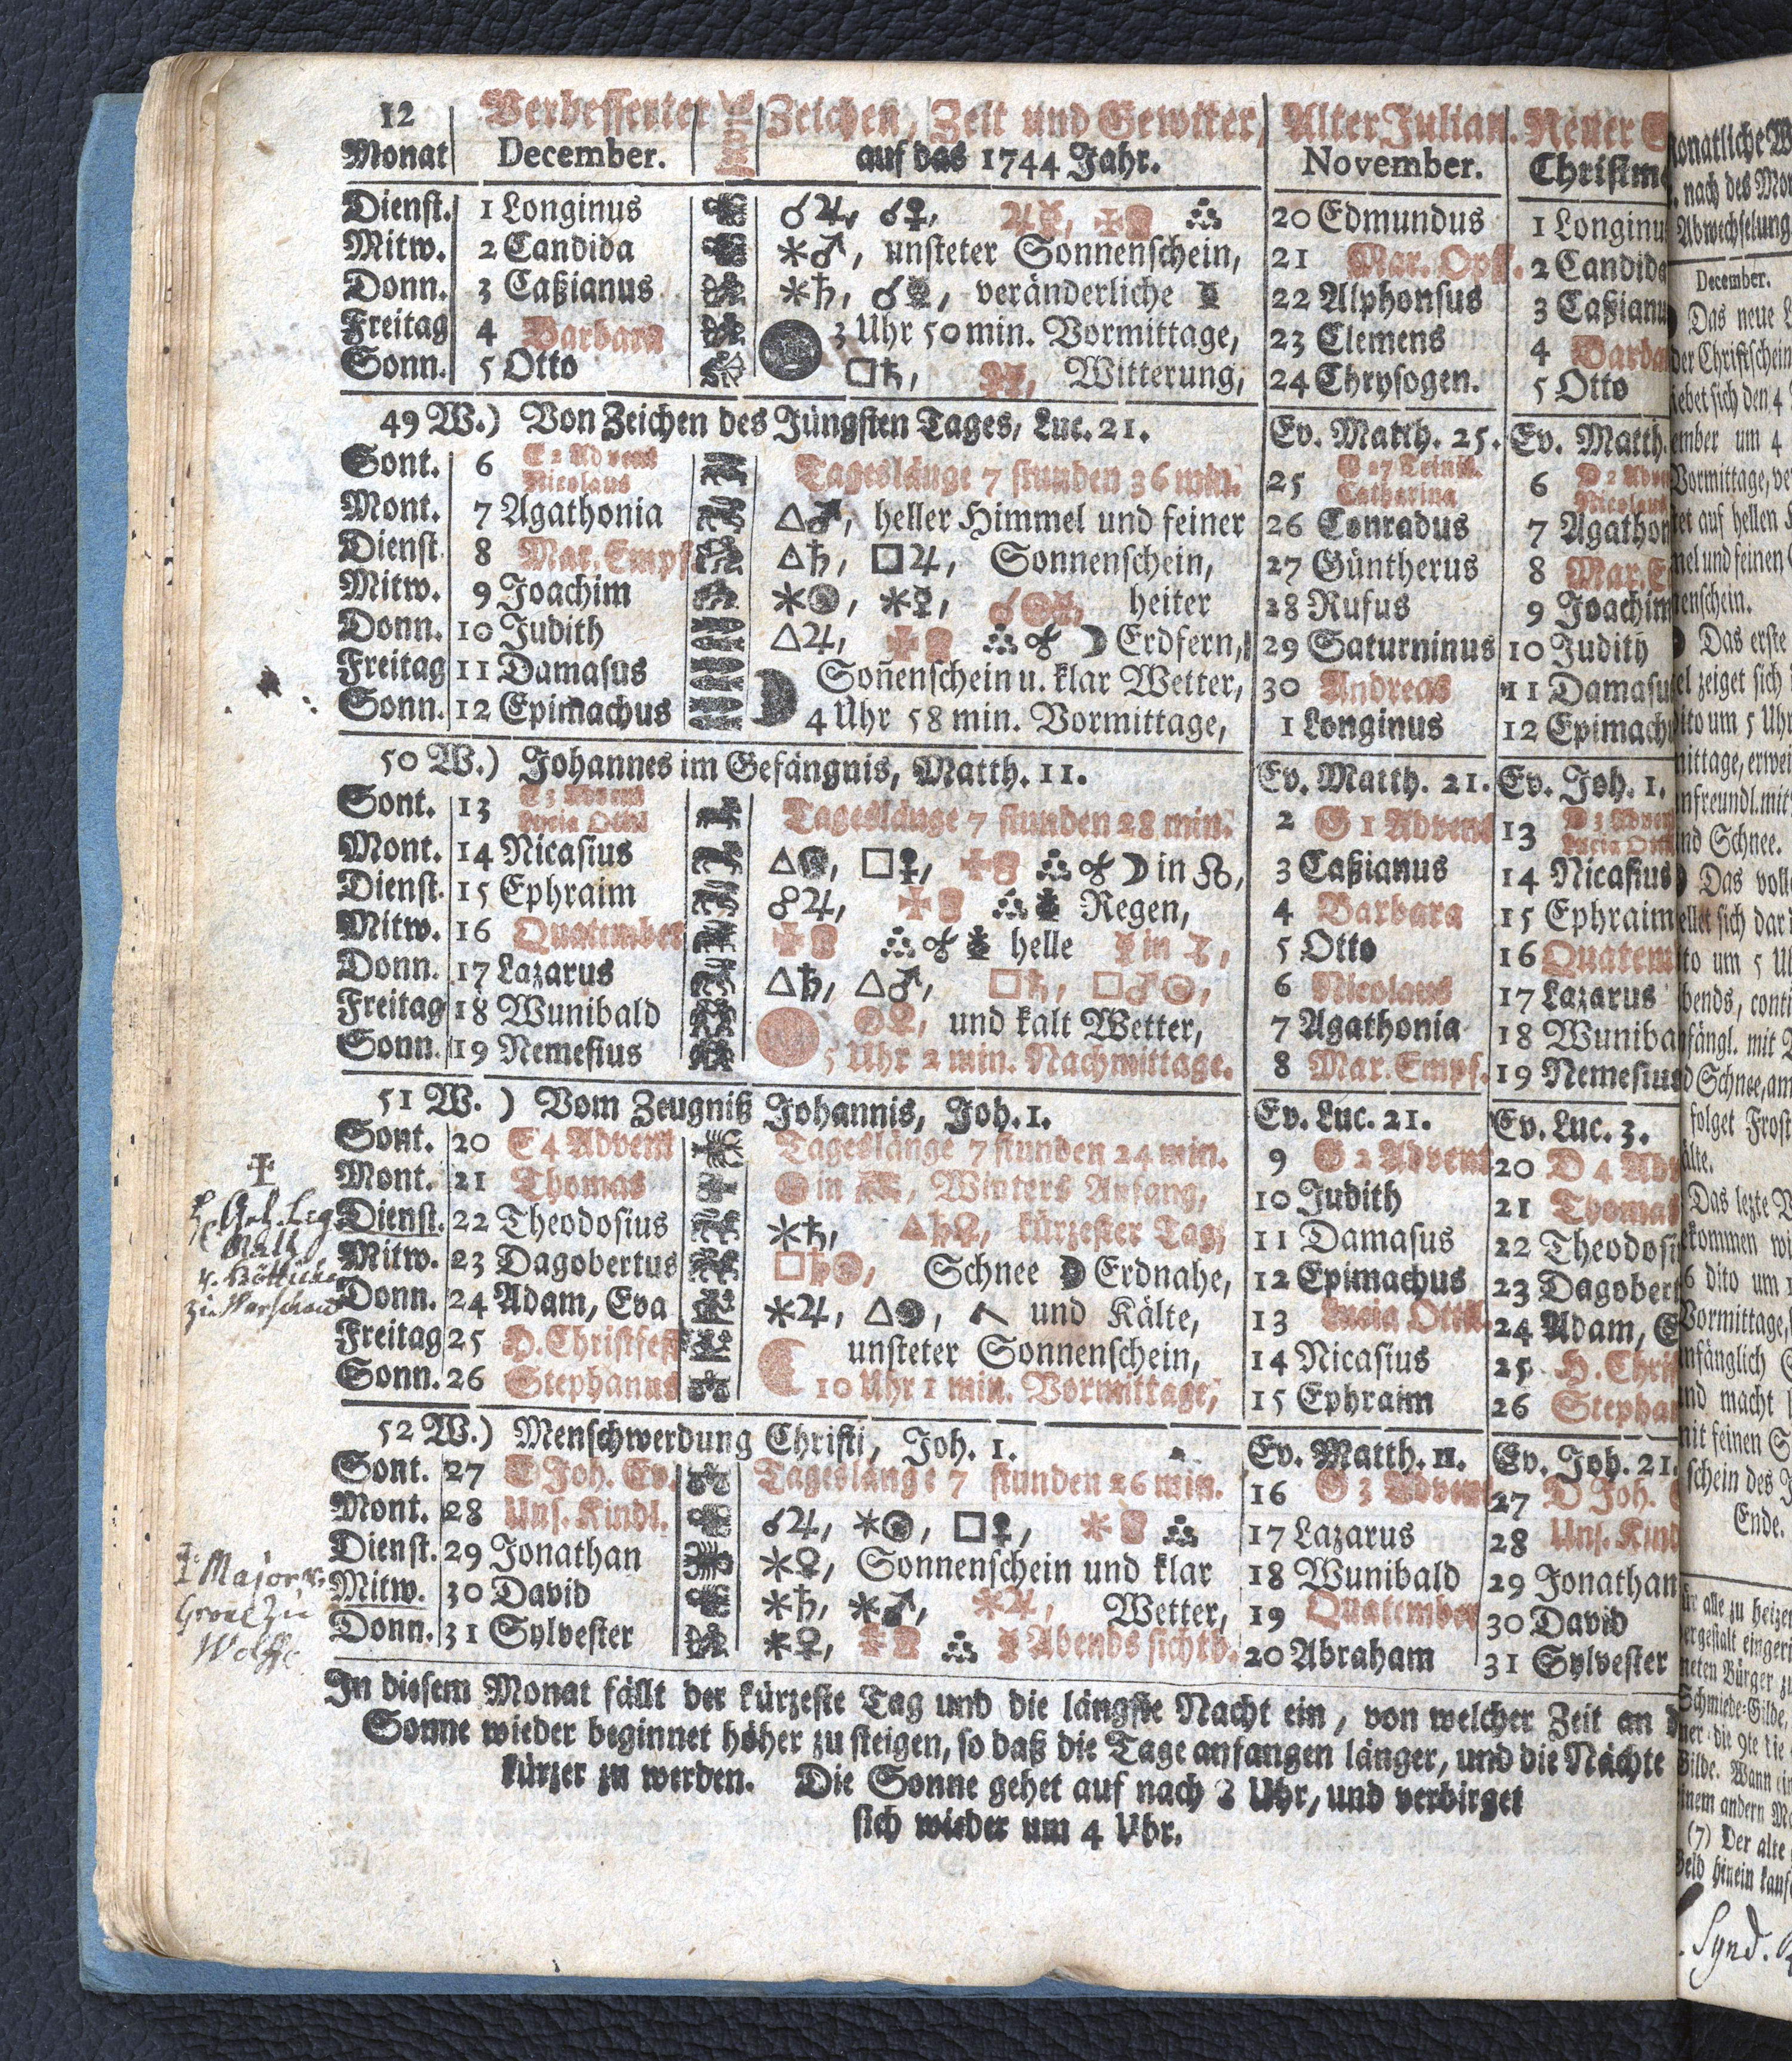 12 Verbesserter Zeichen, Zeit und Gewitter, Alter Julian. Neuer
Monat December. auf das 1744 Jahr. November. Christm
Dienst. 1 Longinus ☌♃, ☌♀, 20 Edmundus 1 Longinu
Mitw. 2 Candida ⚹♂, unsteter Sonnenschein, 21 Mar. Opf. 2 Candida
Donn. 3 Caßianus ⚹♄, veränderliche 22 Alphonsus 3 Caßianu
Freitag 4 Barbara 3 Uhr 50 min. Vormittage, 23 Clemens 4 Barba
Sonn. 5 Otto □♄, Witterung, 24 Chrysogen. 5 Otto
49 W.) Von Zeichen des Jüngsten Tages, Luc. 21. Ev. Matth. 25. Ev. Matth.
Sont. 6 E 2 Advent Nicolaus Tageslänge 7 stunden 36 min. 25 G 27 Trinit. Catharina 6 D 2 Adve Nicolaus
Mont. 7 Agathonia △♂, heller Himmel und feiner 26 Conradus 7 Agathon
Dienst 8 Mar. Empf. △♄, □♃, Sonnenschein, 27 Güntherus 8 Mar. E
Mitw. 9 Joachim heiter 28 Rufus 9 Joachim
Donn. 10 Judith △♃, ☽ Erdfern, 29 Saturninus 10 Judith
Freitag 11 Damasus Soñenschein u. klar Wetter, 30 Andreas 11 Damasu
Sonn. 12 Epimachus 4 Uhr 58 min. Vormittage, 1 Longinus 12 Epimach
50 W.) Johannes im Gefängnis, Matth. 11. Ev. Matth. 21. Ev. Joh. 1.
Sont. 13 E 3 Advent Lucia Ottil Tageslänge 7 stunden 28 min. 2 G 1 Advent 13 D 3 Adven Lucia Ott
Mont. 14 Nicasius □♀, ☽ in ☊, 3 Caßianus 14 Nicasius
Dienst. 15 Ephraim ☍♃, Regen, 4 Barbara 15 Ephraim
Mitw. 16 Quatember helle 5 Otto 16 Quatem
Donn. 17 Lazarus △♄, △♂, □♄, □♂☉, 6 Nicolaus 17 Lazarus
Freitag 18 Wunibald und kalt Wetter, 7 Agathonia 18 Wuniba
Sonn. 19 Nemesius 5 Uhr 2 min. Nachmittage. 8 Mar. Empf. 19 Nemesius
51 W. ) Vom Zeugniß Johannis, Joh. 1. Ev. Luc. 21. Ev. Luc. 3.
Sont. 20 E 4 Advent Tageslänge 7 stunden 24 min. 9 G 2 Advent 20 D 4 Adv
Mont. 21 Thomas ☉ in ♑, Winters Anfang, 10 Judith 21 Thomas
Dienst. 22 Theodosius ⚹♄, kürzester Tag, 11 Damasus 22 Theodosi
Mitw. 23 Dagobertus □♄☉, Schnee ☽ Erdnahe, 12 Epimachus 23 Dagobert
Donn. 24 Adam, Eva ⚹♃, und Kälte, 13 Lucia Ottil. 24 Adam, E
Freitag 25 H. Christfest unsteter Sonnenschein, 14 Nicasius 25 H. Christ
Sonn. 26 Stephanus 10 Uhr 1 min. Vormittage, 15 Ephraim 26 Stephan
52 W.) Menschwerdung Christi, Joh. 1. Ev. Matth. 11. Ev. Joh. 21.
Sont. 27 E Joh. Ev. Tageslänge 7 stunden 26 min. 16 G 3 Advent 27 D Joh.
Mont. 28 Uns. Kindl. ☌♃, □♀, 17 Lazarus 28 Uns. Kind
Dienst. 29 Jonathan ⚹♀, Sonnenschein und klar 18 Wunibald 29 Jonathan
Mitw. 30 David ⚹♄, ⚹♂, ⚹♃, Wetter, 19 Quatember 30 David
Donn. 31 Sylvester ⚹♀, Abends sichtb. 20 Abraham 31 Sylvester
In diesem Monat fällt der kürzeste Tag und die längste Nacht ein, von welcher Zeit an d
Sonne wieder beginnet höher zu steigen, so daß die Tage anfangen länger, und die Nächte
kürzer zu werden. Die Sonne gehet auf nach Uhr, und verbirget
sich wieder um 4 Uhr.
Major v.
Grone zu
Wolffe
onatliche W
nach des Mon
Abwechselung
December.
Das neue L
der Christschein
ebet sich den 4
ember um 4
Vormittage, ve
et auf hellen
mel und feinen
enschein.
Das erste
el zeiget sich
ito um 5 Uhr
mittage, erwei
nfreundl. mit
nd Schnee.
Das voll
ellet sich dar
to um 5 Uh
bends, conti
fängl. mit
d Schnee, am
folget Frost
älte.
Das lezte V
kommen wi
6 dito um
Vormittage,
nfänglich
nd macht
nit feinen S
schein des J
Ende.
ür alle zu heizen
er gestalt eingeri
neten Bürger zu
Schmiede-Gilde,
ner. die 9te die
Gilde. Wann ein
inem andern Mo
(7) Der alte
Geld hinein kauf
Synd.